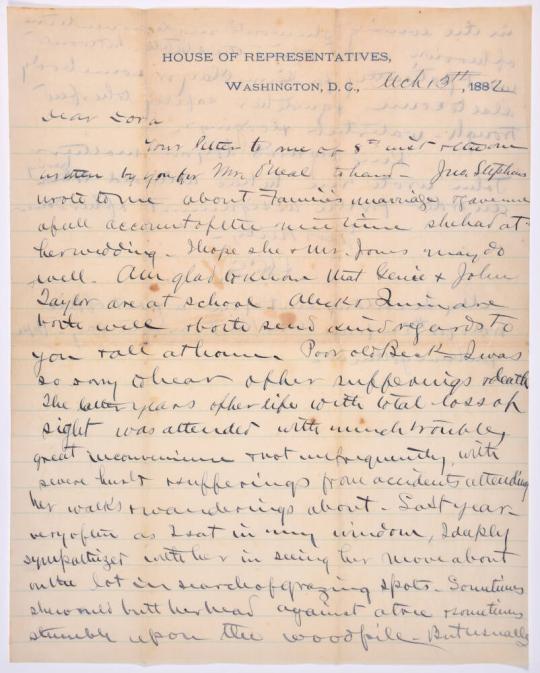 HOUSE OF REPRESENTATIVES,
WASHINGTON, D. C., Mch 15th, 1882
Dear Dora
Your letter to me of 8th inst & the one
written by you for Mr. O'Neal to hand - Jno. Stephens
wrote to me about Fannie's marriage & gave me
a full account of the nice time she had at
her wedding. I hope she & Mr. Jones may do
well. Am glad to know that Genie & John
Taylor are at school Aleck & Quin, are
both well & both send kind regards to
you & all at home. Poor old Beck - I was
so sorry to hear of her sufferings & death
The latter years of her life with total loss of
sight was attended with much trouble,
great inconvenience & not unfrequently, with
severe hurts & sufferings from accidents attending
her walks & wanderings about - Last year
very often as I sat in my window, I deeply
sympathized with her in seeing her move about
on the lot in search of grazing spots - Sometimes
she would butt her head against a tree & sometimes
stumble upon the woodpile - But usually